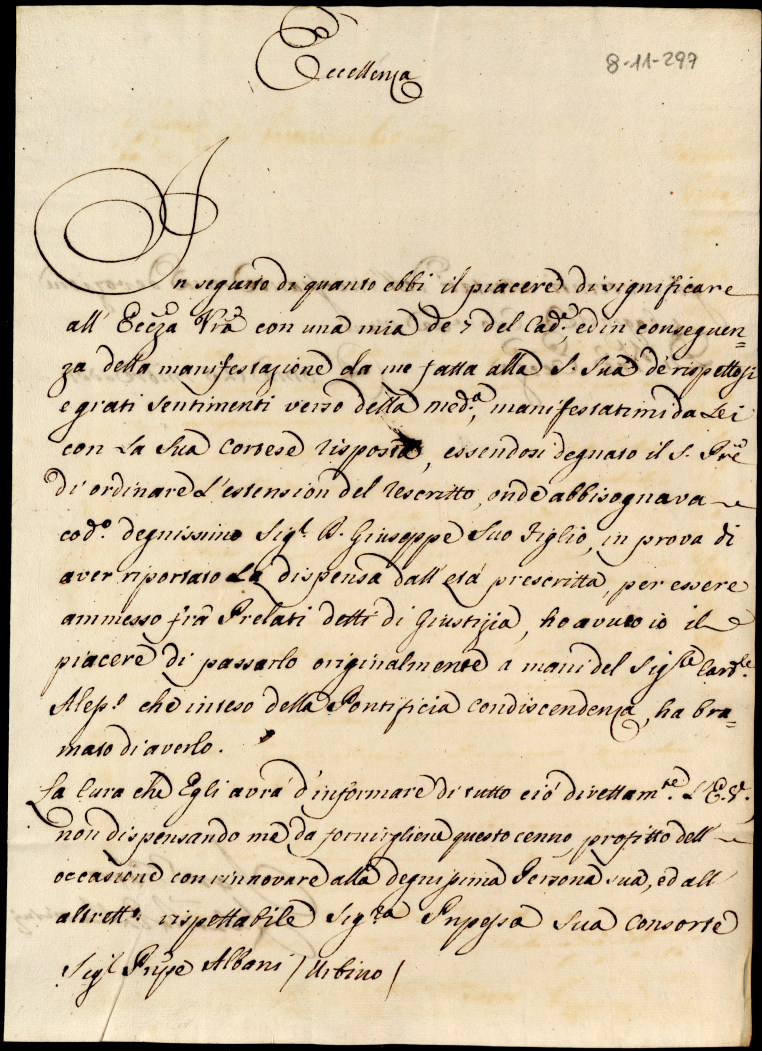 Eccellenza
8-11-297
In seguito di quanto ebbi il piacere di significare
all' Eccza Vrã con una mia de 7 del Cad.e, ed in conseguen=
za della manifestazione da me fatta alla S. Sua de' rispettosi
e grati sentimenti verso della med.a, manifestatimi da Lei
con La Sua Cortese risposta, essendosi degnato il S. Prẽ
di ordinare L'estension del rescritto, onde abbisognava
cod.o degnissimo Sig.r D. Giuseppe Suo Figlio, in prova di
aver riportato La dispensa dall' età prescritta, per essere
ammesso frà Prelati detti di Giustizia, ho avuto io il
piacere di passarlo originalmente a mani del Sig.le Card.le
Aless.o che inteso della Pontificia condiscendenza, ha bra=
mato di averlo.
La Cura che Egli avrà d'informare di tutto ciò direttam.te L'E.V.,
non dispensando me da fornirgliene questo cenno profitto dell'
occasione con rinnovare alla degnissima Persona sua, ed all'
altrett.o rispettabile Sig.ra Pnpessa Sua Consorte
Sig.r Pnpe Albani / Urbino /